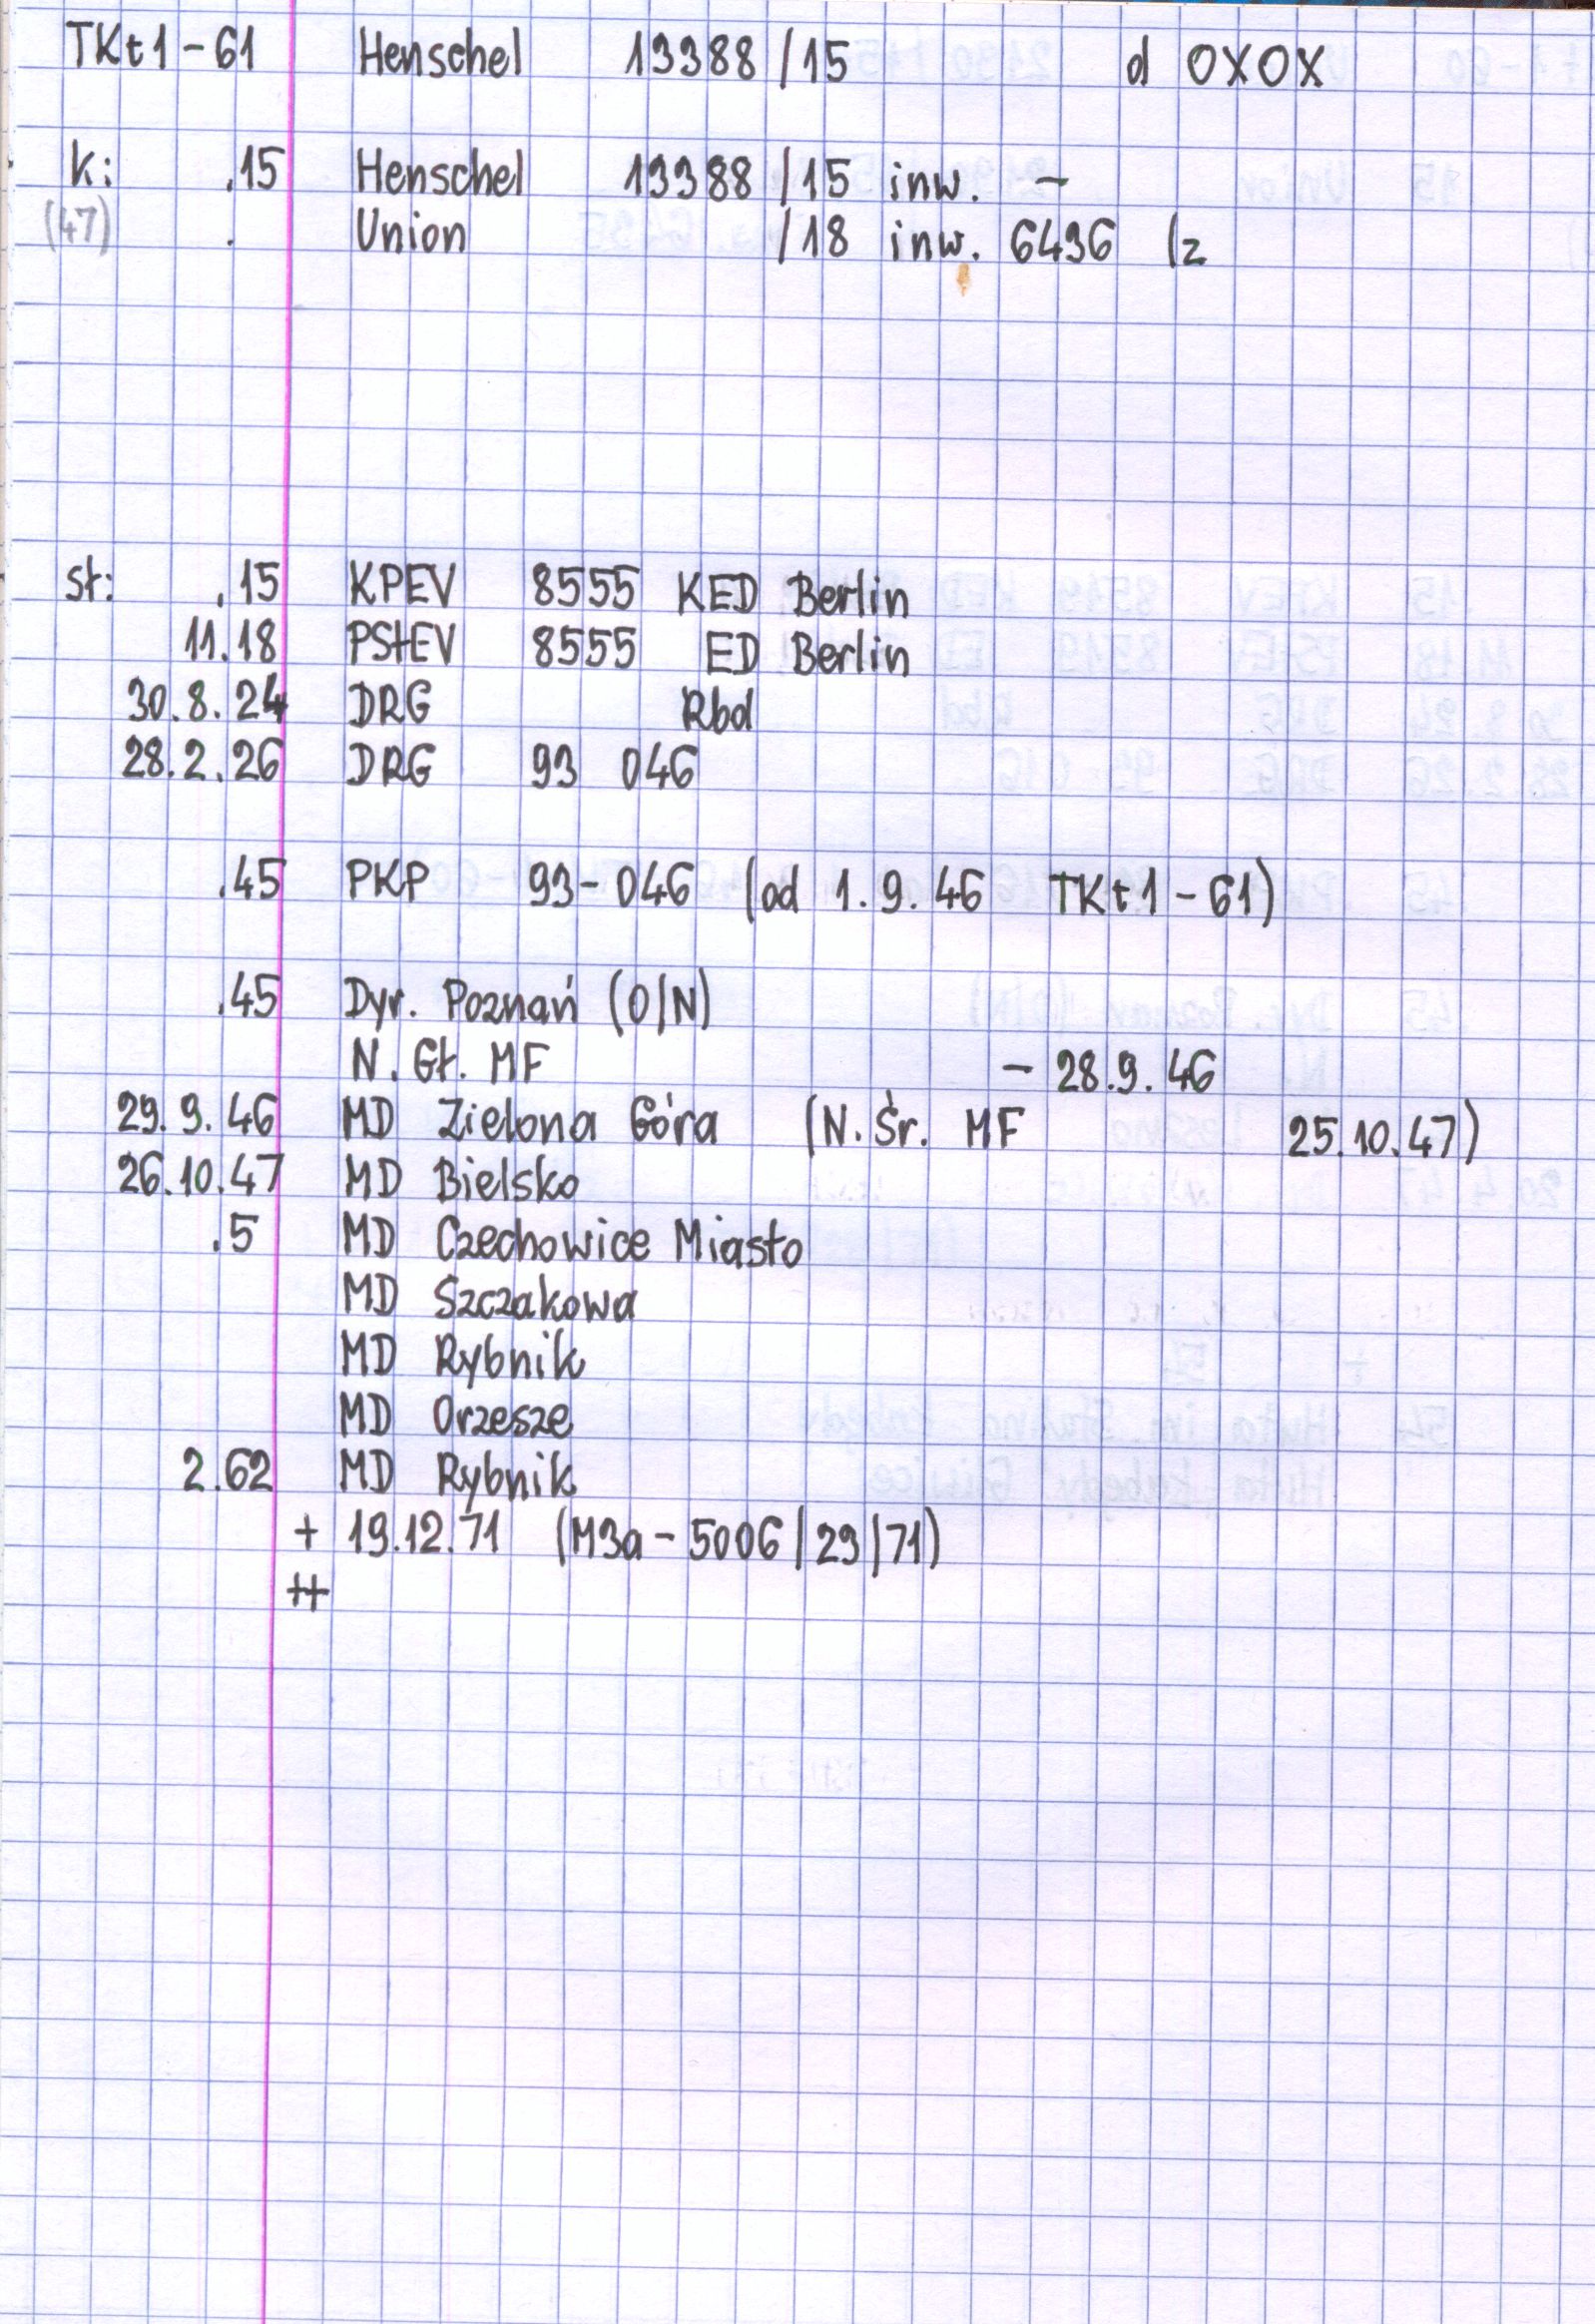 TKt1-61 Henschel 13388/15 d OXOX
k: .15 Henschel 13388/15 inw. -
(47) . Union /18 inw. 6436 (z
st: .15 KPEV 8555 KED Berlin
11.18 PStEV 8555 ED Berlin
30.8.24 DRG Rbd
28.2.26 DRG 93 046
.45 PKP 93-046 (od 1.9.46 TKt1-61)
.45 Dyr. Poznań (O/N)
N. Gł. MF - 28.9.46
29.9.46 MD Zielona Góra (N. Śr. MF 25.10.47)
26.10.47 MD Bielsko
.5 MD Czechowice Miasto
MD Szczakowa
MD Rybnik
MD Orzesze
2.62 MD Rybnik
+ 19.12.71 (M3a-5006/29/71)
++